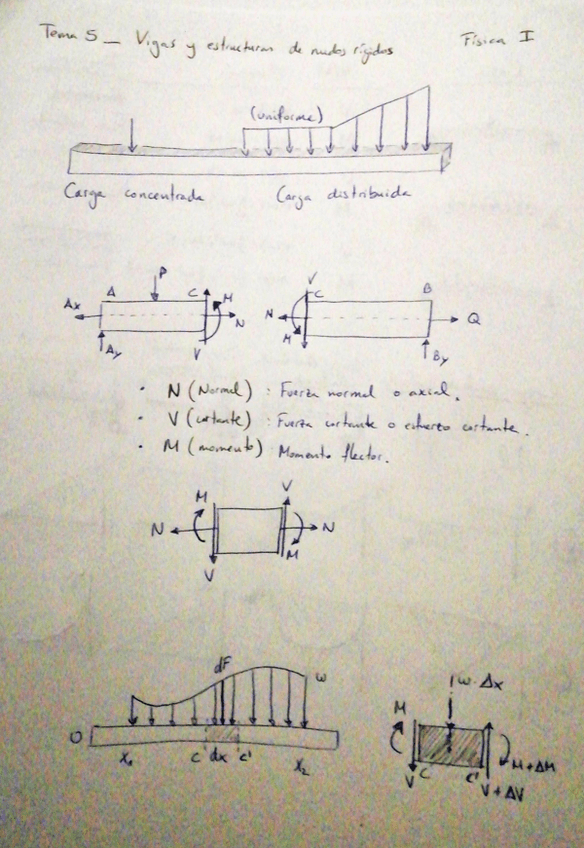 Tema 5 _ Vigas y estructuras de nudos rígidos Física I
(uniforme)
Carga concentrada Carga distribuida
P V
A C M C B
Ax N N Q
Ay V M By
• N (Normal) : Fuerza normal o axial.
• V (cortante) : Fuerza cortante o esfuerzo cortante.
• M (momento) : Momento flector.
M V
N N
V M
dF w w · Δx
M
O M + ΔM
X₁ C dx C' X₂ V C C' V + ΔV